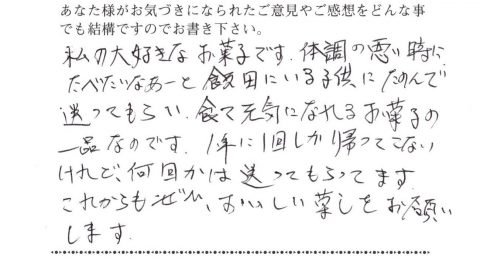 あなた様がお気づきになられたご意見やご感想をどんな事
でも結構ですのでお書き下さい。
私の大好きなお菓子です。体調の悪い時に
たべたいなあーと飯田にいる子供にたのんで
送ってもらい、食て元気になれるお菓子の
一品なのです。1年に1回しか帰ってこない
けれど、何回かは送ってもらってます
これからもぜひ、おいしい菓しをお願い
します。